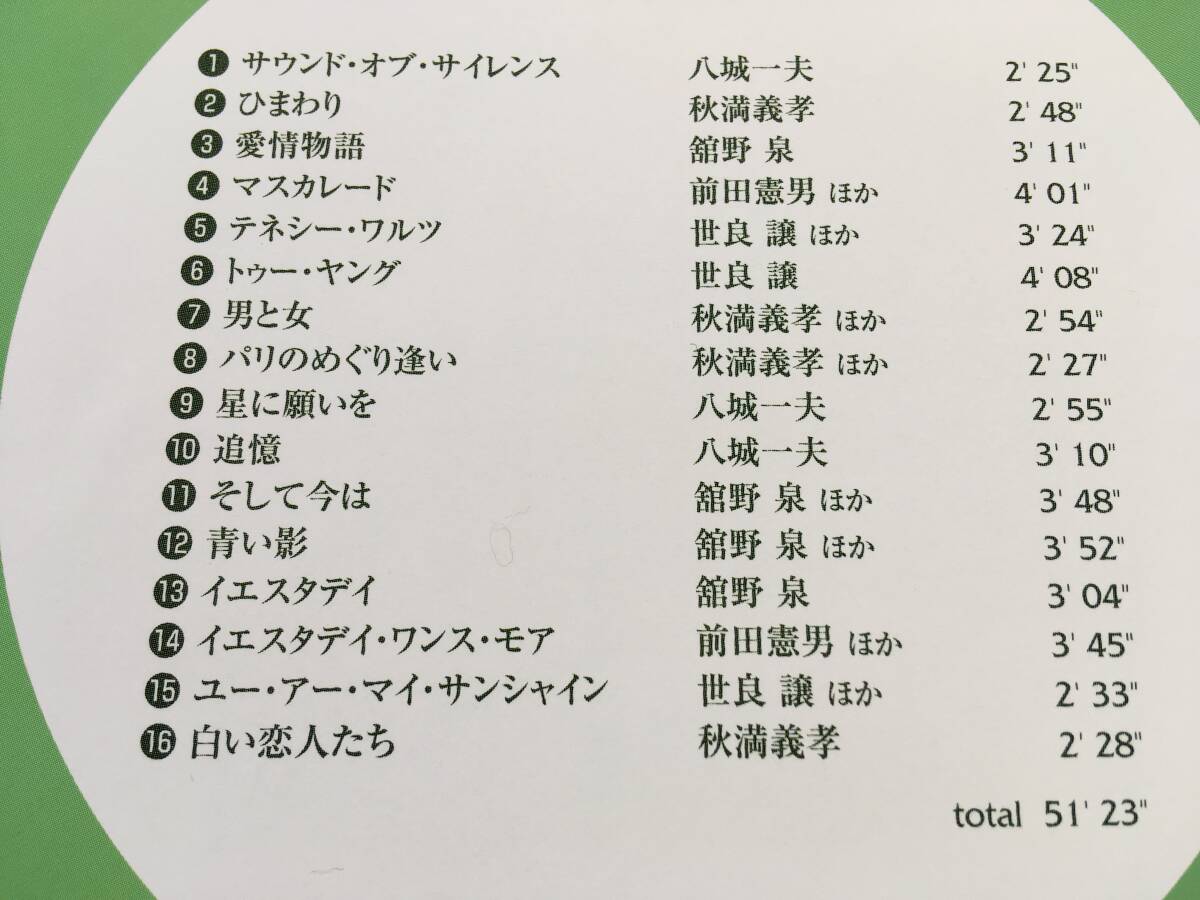 ❶ サウンド・オブ・サイレンス 八城一夫 2' 25"
❷ ひまわり 秋満義孝 2' 48"
❸ 愛情物語 舘野 泉 3' 11"
❹ マスカレード 前田憲男 ほか 4' 01"
❺ テネシー・ワルツ 世良 譲 ほか 3' 24"
❻ トゥー・ヤング 世良 譲 4' 08"
❼ 男と女 秋満義孝 ほか 2' 54"
❽ パリのめぐり逢い 秋満義孝 ほか 2' 27"
❾ 星に願いを 八城一夫 2' 55"
❿ 追憶 八城一夫 3' 10"
⓫ そして今は 舘野 泉 ほか 3' 48"
⓬ 青い影 舘野 泉 ほか 3' 52"
⓭ イエスタデイ 舘野 泉 3' 04"
⓮ イエスタデイ・ワンス・モア 前田憲男 ほか 3' 45"
⓯ ユー・アー・マイ・サンシャイン 世良 譲 ほか 2' 33"
⓰ 白い恋人たち 秋満義孝 2' 28"
total 51' 23"